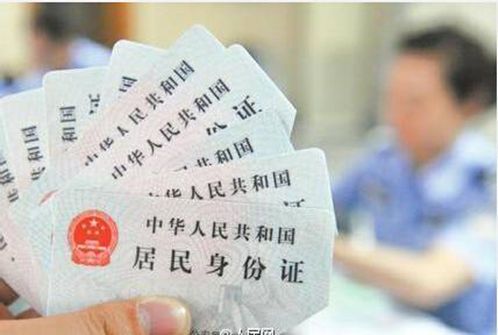 中华人民共和国
中华人民共和国
证
中华人民共和国
中华人民共和国
中华人民共和国
居民身份证
@人民网